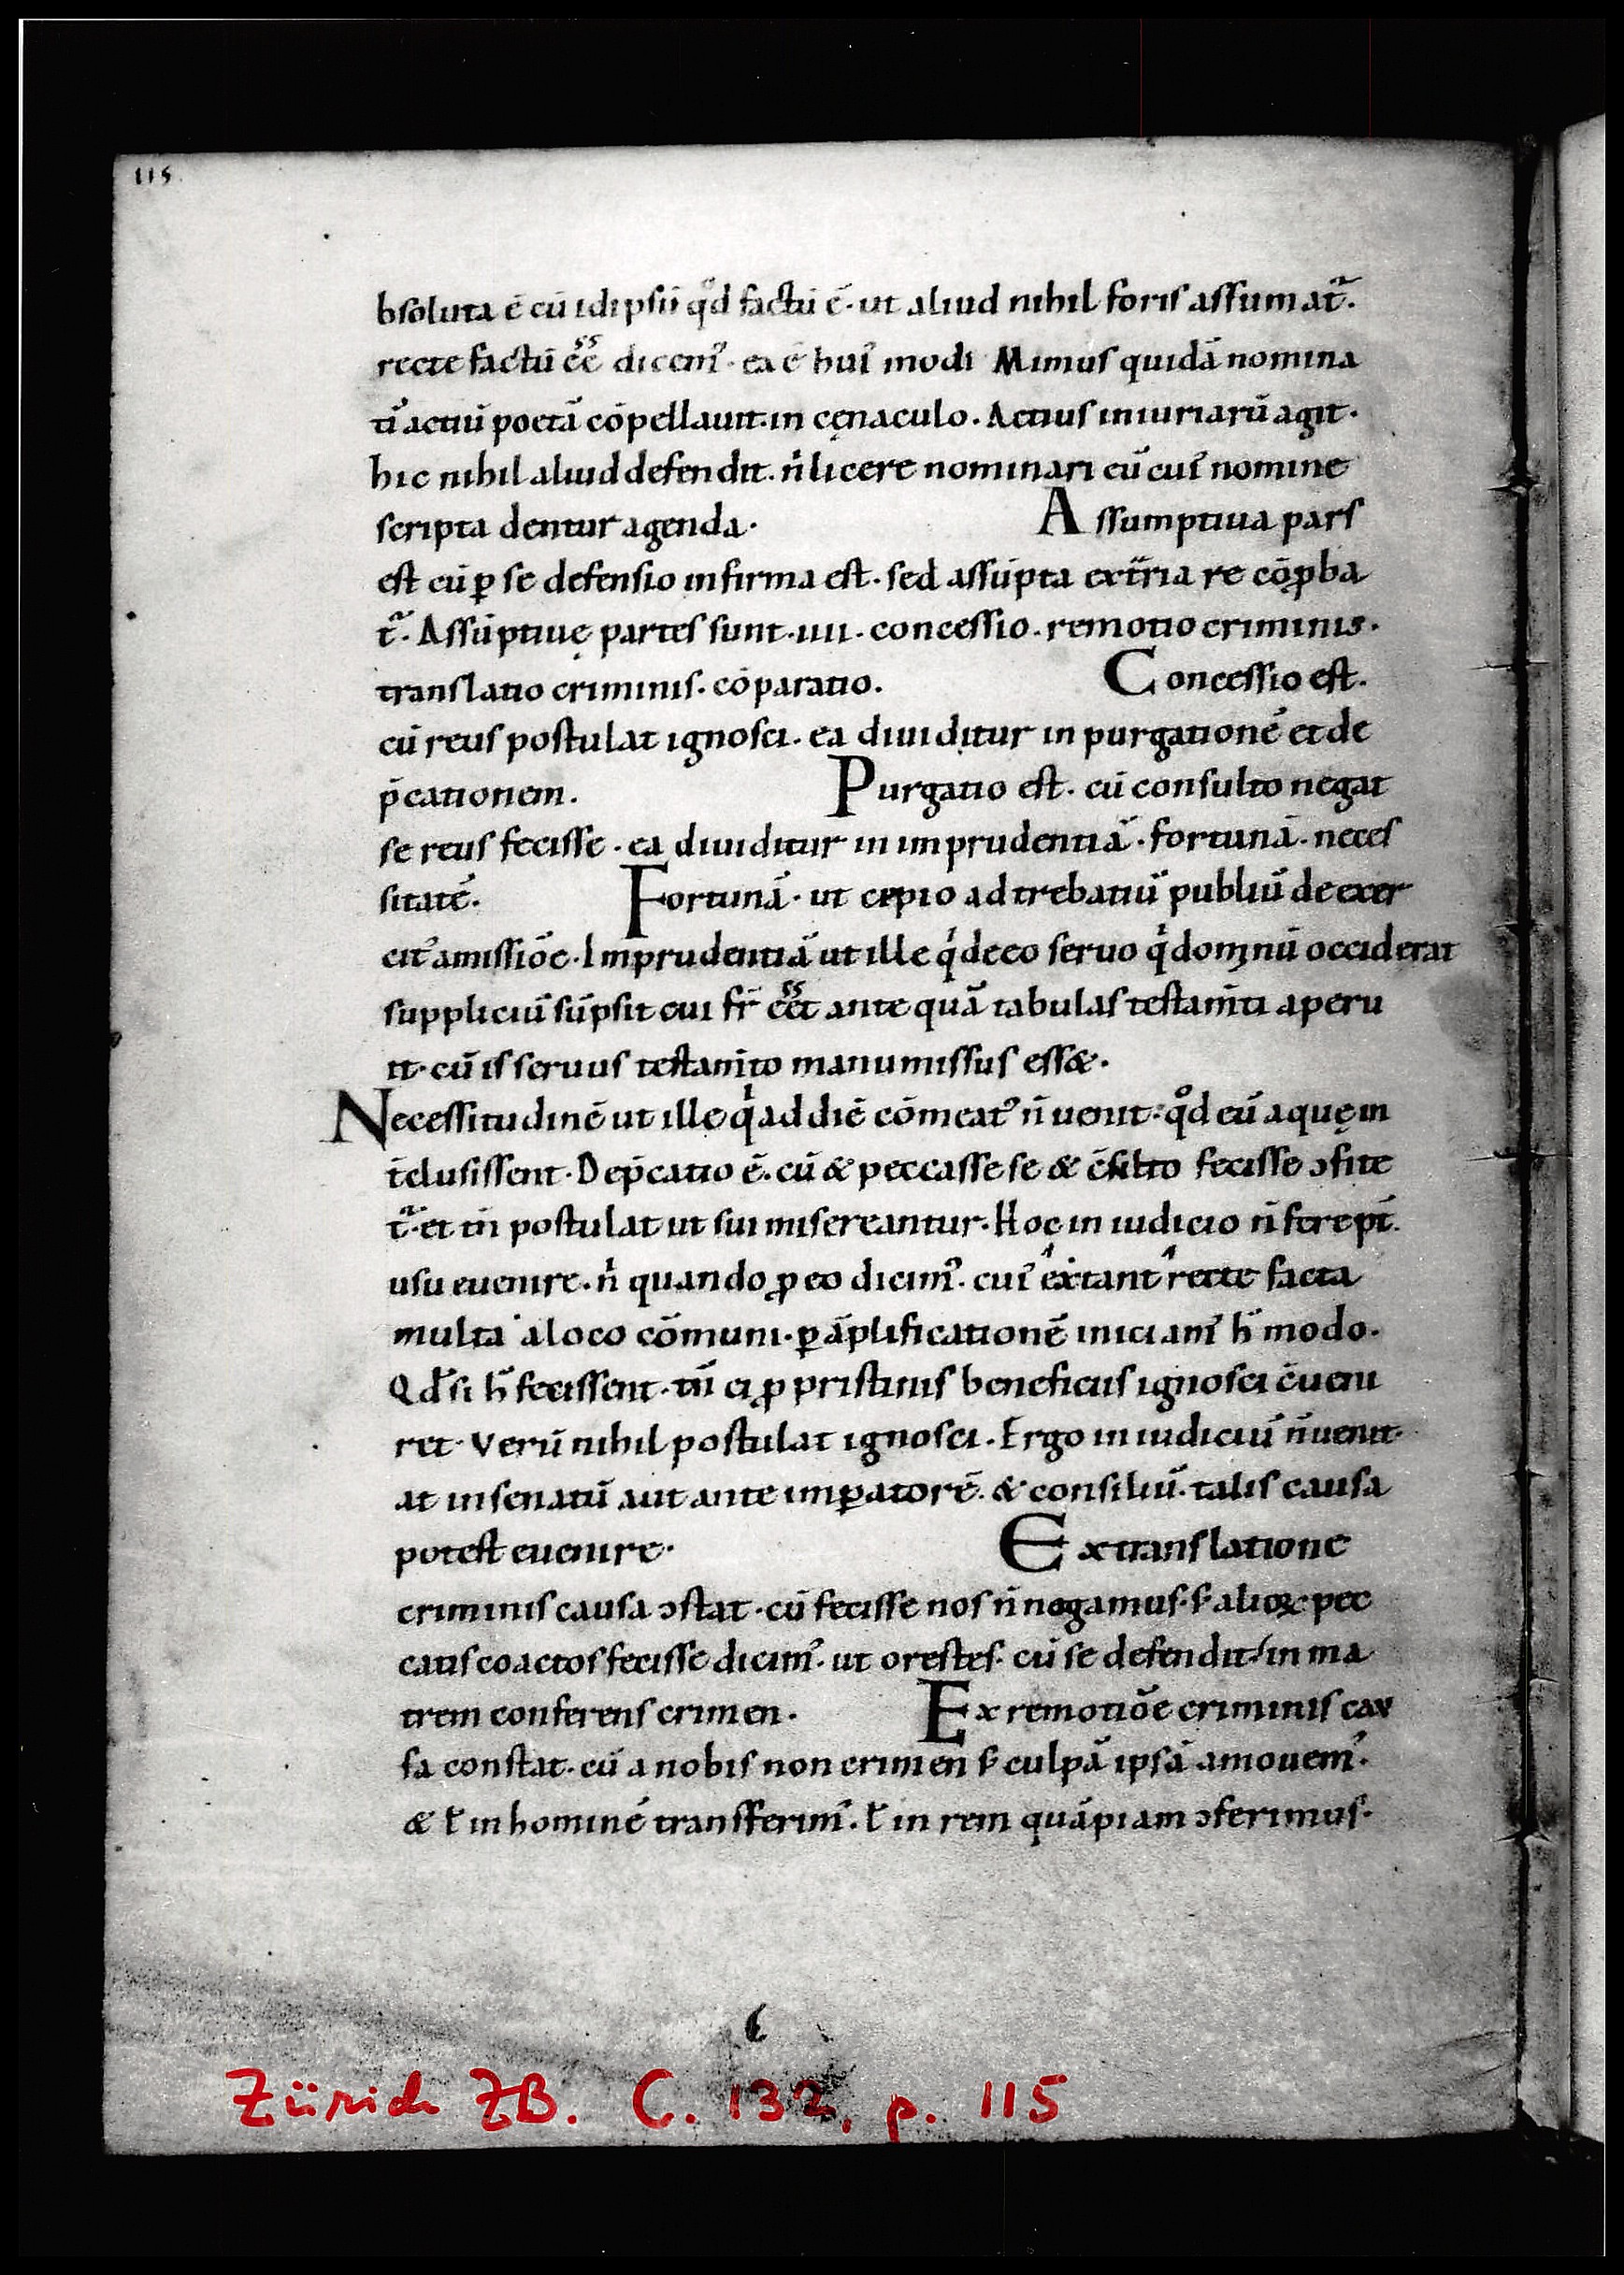 115
bsoluta ē cū id ipsū qͦd factū ē· ut aliud nihil foris assumatᷣ.
recte factū eēe dicemꝰ· ea ē huiꝰmodi Mimus quidā nomina
tī actiū poetā cōpellauit· in cęnaculo. Actius iniuriarū agit·
hic nihil aliud defendit. ñ licere nominari eū cuiꝰ nomine
scripta dentur agenda· Assumptiua pars
est cū ꝑ se defensio infirma est· sed assūpta extͣria re cōꝓba
tᷣ. Assūptiuę partes sunt· iiii· concessio· remotio criminis·
translatio criminis· cōparatio. Concessio est.
cū reus postulat ignosci· ea diuiditur in purgationē et de
p̄cationem. Purgatio est· cū consulto negat
se reus fecisse· ea diuiditur in imprudentiā· fortunā· neces
sitatē. Fortunā· ut cępio ad trebatiū publiū de exer
citꝰ amissiōe· Imprudentiā ut ille qͥ de eo seruo qͥ dominū occiderat
suppliciū sūpsit cui fr̄ eēt ante quā tabulas testam̄ti aperu
it· cū is seruus testam̄to manumissus ess&·
Necessitudinē ut ille qͥ ad diē cōmeatꝰ ñ uenit· qͦd eū aquę in
t̄clusissent· Dep̄catio ē. cū & peccasse se & c̄sulto fecisse ɔfite
tᷣ· et tn̄ postulat ut sui misereantur· Hoc in iudicio ñ fere pt̄.
usu euenire· nͥ quando ꝓ eo dicimꝰ· cuiꝰ extant recte facta
multa a loco cōmuni· ꝑ āplificationē iniciamꝰ hͦ modo·
Qd̄ si hͦ fecissent· tn̄ ei ꝓ pristinis beneficiis ignosci c̄ueni
ret· Verū nihil postulat ignosci· Ergo in iudiciū ñ uenit·
at in senatū aut ante imꝑatorē· & consiliū· talis causa
potest euenire· Ex translatione
criminis causa ɔstat· cū fecisse nos ñ negamus· s; alioꝝ pec
catis coactos fecisse dicimꝰ· ut orestes· cū se defendit in ma
trem conferens crimen· Ex remotiōe criminis cau
sa constat· cū a nobis non crimen s; culpā ipsā amouemꝰ·
& ł in hominē transferimꝰ· ł in rem quāpiam ɔferimus·
Zürich ZB. C. 132, p. 115